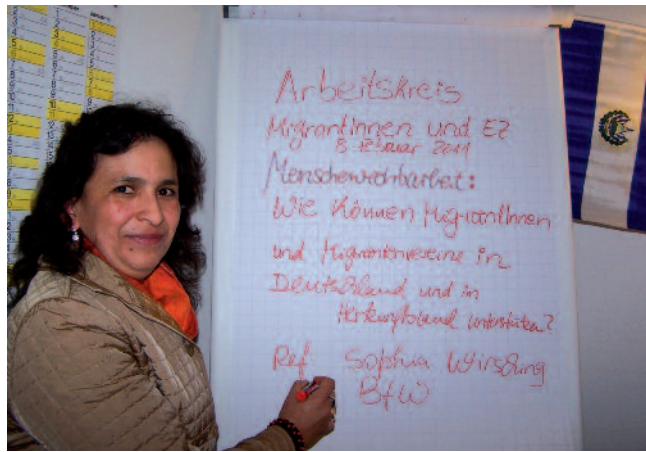 Arbeitskreis
MigrantInnen und EZ
8. Februar 2011
Menschenrechtsarbeit:
Wie können MigrantInnen
und Migrantenvereine in
Deutschland und in
Herkunftsland unterstützen?
Ref Sophia Wirsching
BfW